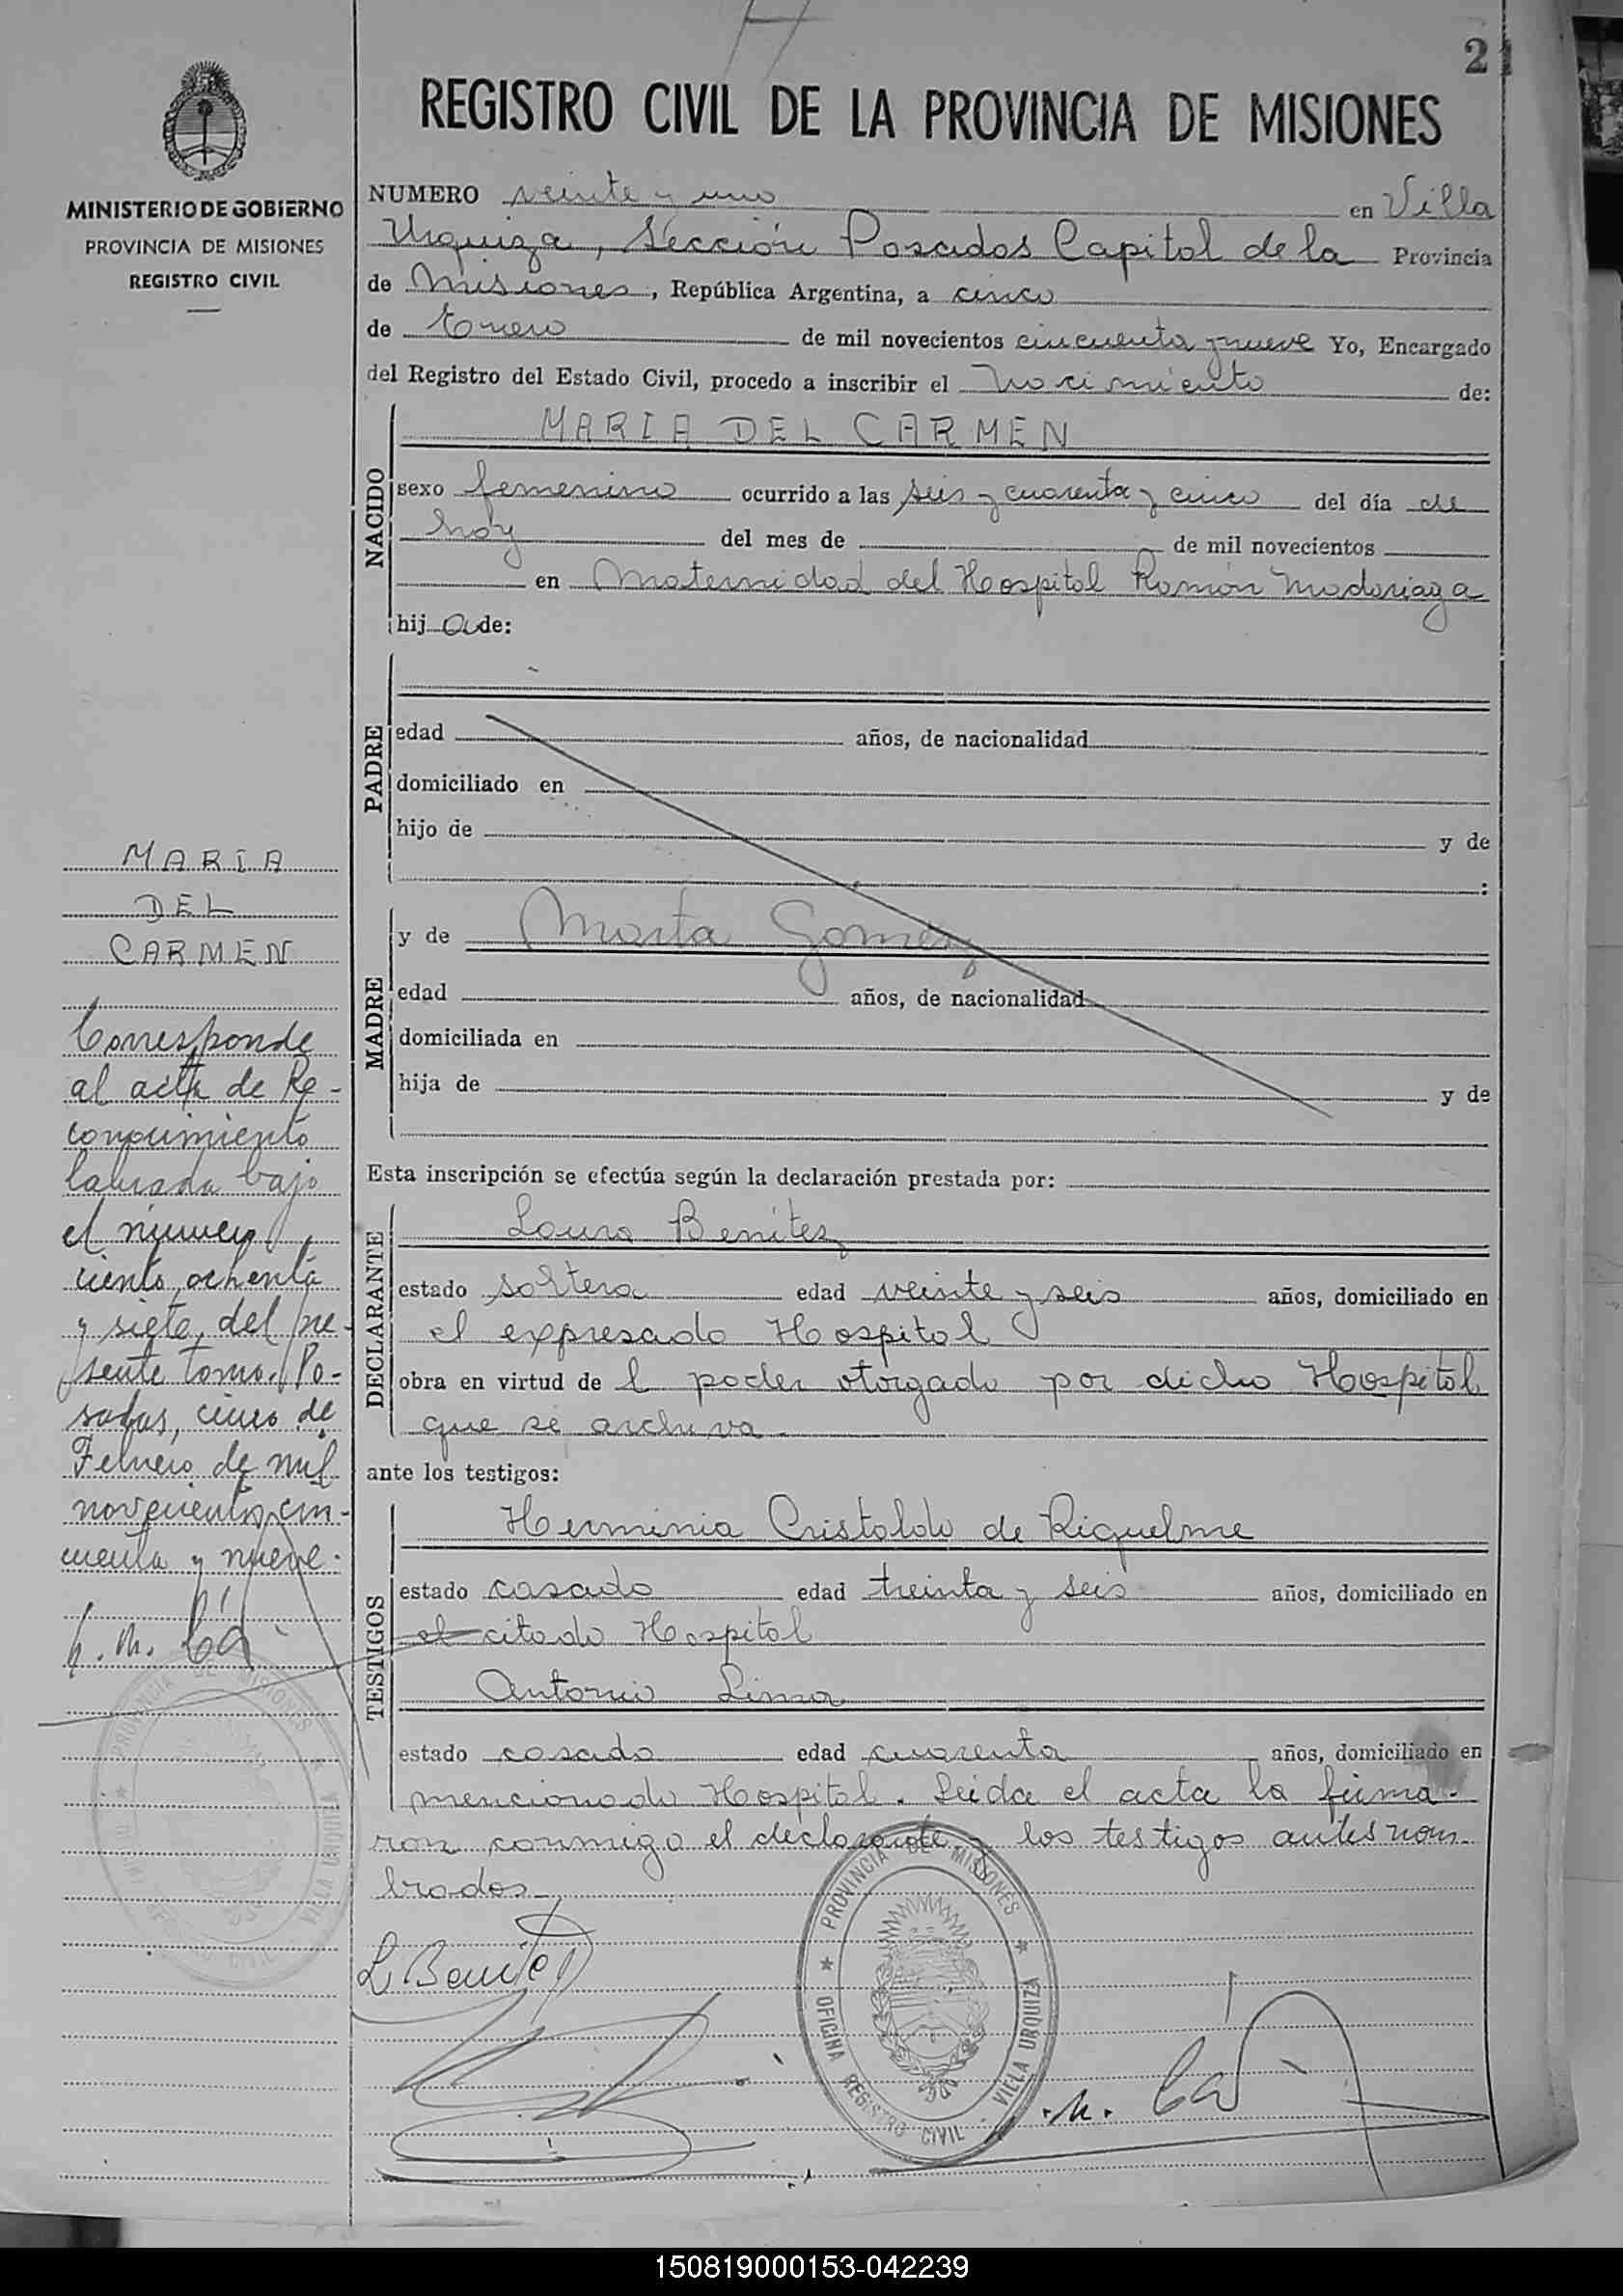 21
REGISTRO CIVIL DE LA PROVINCIA DE MISIONES
MINISTERIO DE GOBIERNO
PROVINCIA DE MISIONES
REGISTRO CIVIL
NUMERO veinte y uno en Villa
Urquiza, Sección Posadas Capital de la Provincia
de Misiones, República Argentina, a cinco
de Enero de mil novecientos cincuenta y nueve Yo, Encargado
del Registro del Estado Civil, procedo a inscribir el nacimiento de:
NACIDO
MARIA DEL CARMEN
sexo femenino ocurrido a las seis y cuarenta y cinco del día de
hoy del mes de de mil novecientos
en Maternidad del Hospital Ramón Madariaga
hija de:
PADRE
edad años, de nacionalidad
domiciliado en
hijo de y de
:
MADRE
y de Marta Gomez
edad años, de nacionalidad
domiciliada en
hija de y de
Esta inscripción se efectúa según la declaración prestada por:
DECLARANTE
Laura Benitez
estado soltera edad veinte y seis años, domiciliado en
el expresado Hospital
obra en virtud de l poder otorgado por dicho Hospital
que se archiva.
ante los testigos:
TESTIGOS
Herminia Cristaldo de Riquelme
estado casada edad treinta y seis años, domiciliado en
el citado Hospital
Antonio Lima
estado casado edad cuarenta años, domiciliado en
mencionado Hospital. Leida el acta la firma-
ron conmigo el declarante y los testigos antes nom-
brados
L. Benitez
PROVINCIA DE MISIONES
OFICINA REGISTRO CIVIL - VILLA URQUIZA
MARIA
DEL
CARMEN
Corresponde
al acta de Re-
conocimiento
labrada bajo
el número
ciento ochenta
y siete, del pre-
sente tomo. Po-
sadas, cinco de
Febrero de mil
novecientos cin-
cuenta y nueve.
PROVINCIA DE MISIONES
VILLA URQUIZA
150819000153-042239